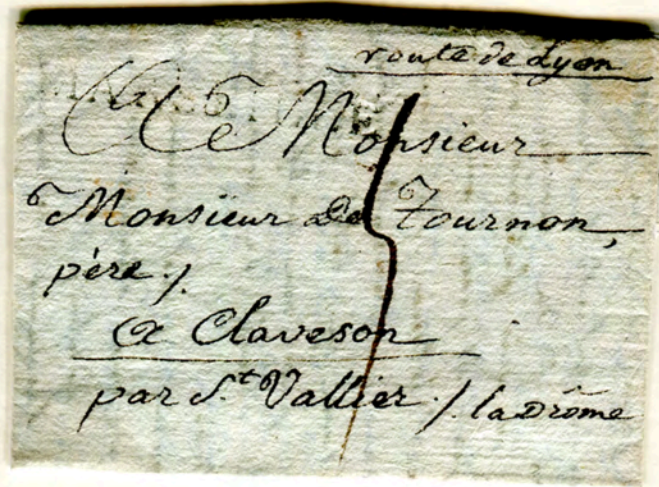 route de Lyon
A Monsieur
Monsieur De Tournon,
père /.
a Claveson
par S.t Vallier /. la Drôme